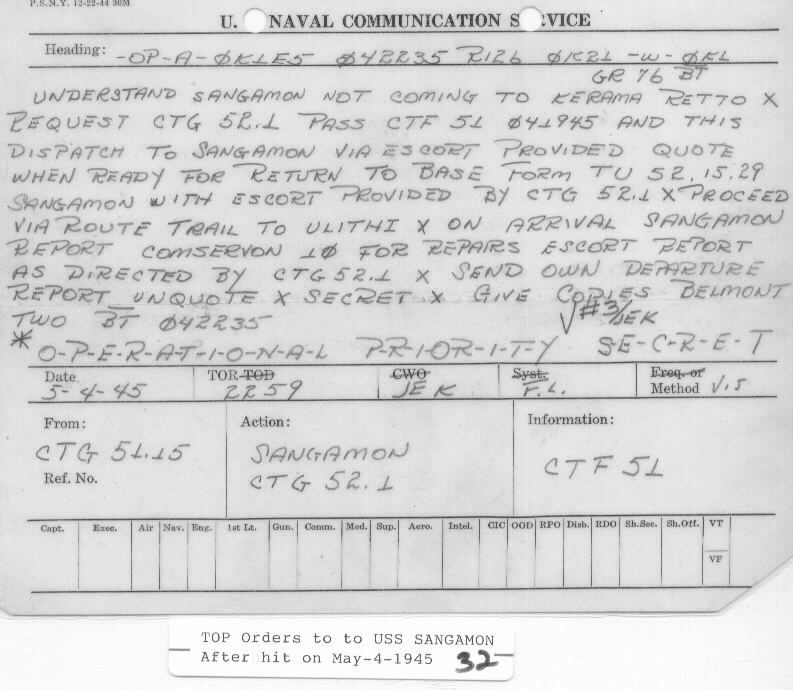 P.S.N.Y. 12-22-44 30M
U. NAVAL COMMUNICATION S VICE
Heading: -OP-A-ØK1E5 Ø42235 R126 ØK21 -W- ØK1
GR 76 BT
UNDERSTAND SANGAMON NOT COMING TO KERAMA RETTO X
REQUEST CTG 52.1 PASS CTF 51 Ø41945 AND THIS
DISPATCH TO SANGAMON VIA ESCORT PROVIDED QUOTE
WHEN READY FOR RETURN TO BASE FORM TU 52.15.29
SANGAMON WITH ESCORT PROVIDED BY CTG 52.1 X PROCEED
VIA ROUTE TRAIL TO ULITHI X ON ARRIVAL SANGAMON
REPORT COMSERVON 1Ø FOR REPAIRS ESCORT REPORT
AS DIRECTED BY CTG 52.1 X SEND OWN DEPARTURE
REPORT UNQUOTE X SECRET X GIVE COPIES BELMONT
TWO BT Ø42235 √#3/JEK
* O-P-E-R-A-T-I-O-N-A-L P-R-I-O-R-I-T-Y S-E-C-R-E-T
Date TOR-TOD CWO Syst. Freq. or
5-4-45 2259 JEK F.L. Method VIS
From: Action: Information:
CTG 51.15 SANGAMON CTF 51
Ref. No. CTG 52.1
Capt. Exec. Air Nav. Eng. 1st Lt. Gun. Comm. Med. Sup. Aero. Intel. CIC OOD RPO Disb. RDO Sh.Sec. Sh.Off. VT
VF
TOP Orders to to USS SANGAMON
After hit on May-4-1945 32